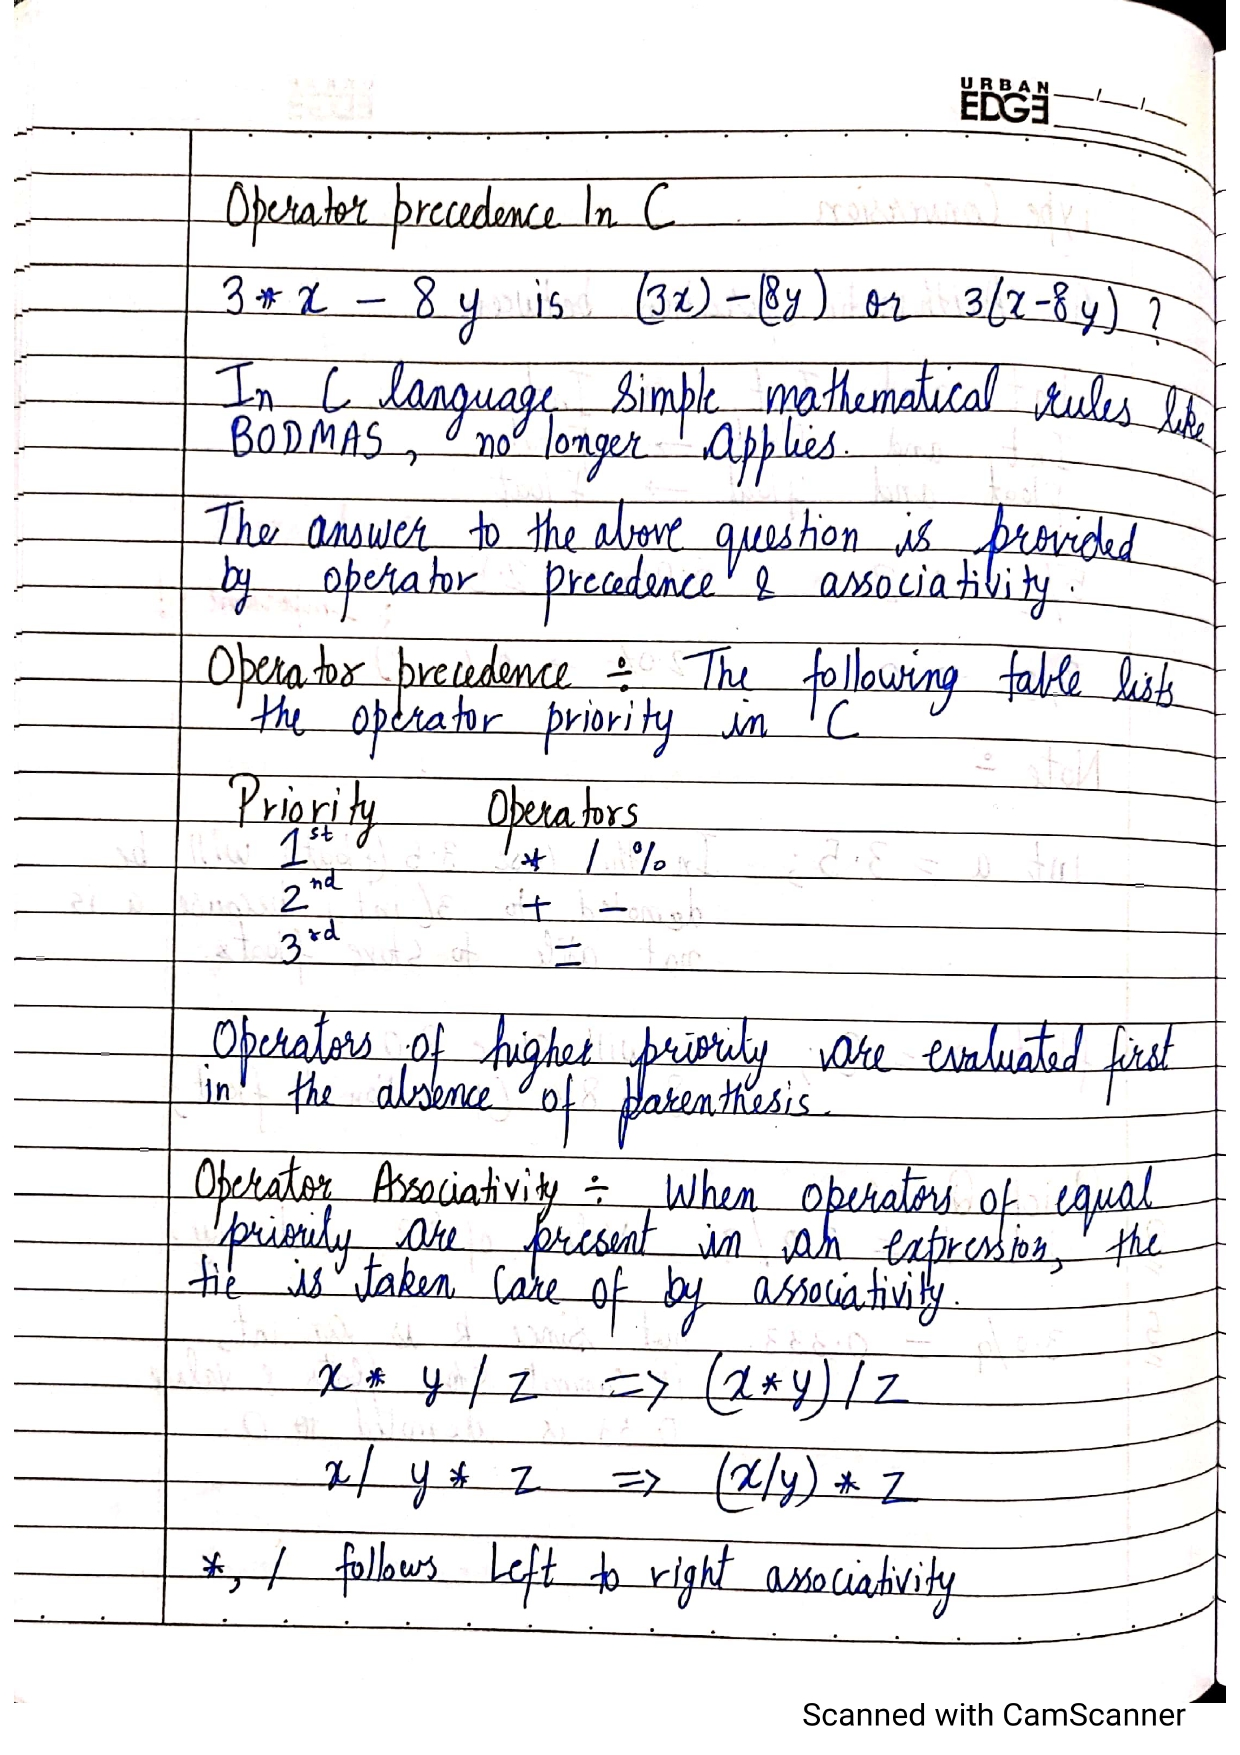 URBAN
EDGE
Operator precedence In C
3 * x - 8 y is (3x) - (8y) or 3(x-8y) ?
In C language simple mathematical rules like
BODMAS, no longer applies.
The answer to the above question is provided
by operator precedence & associativity.
Operator precedence ÷ The following table lists
the operator priority in C
Priority Operators
1st * / %
2nd + -
3rd =
Operators of higher priority are evaluated first
in the absence of parenthesis.
Operator Associativity ÷ When operators of equal
priority are present in an expression, the
tie is taken care of by associativity.
x * y / z => (x*y)/z
x/ y * z => (x/y) * z
*, / follows left to right associativity
Scanned with CamScanner